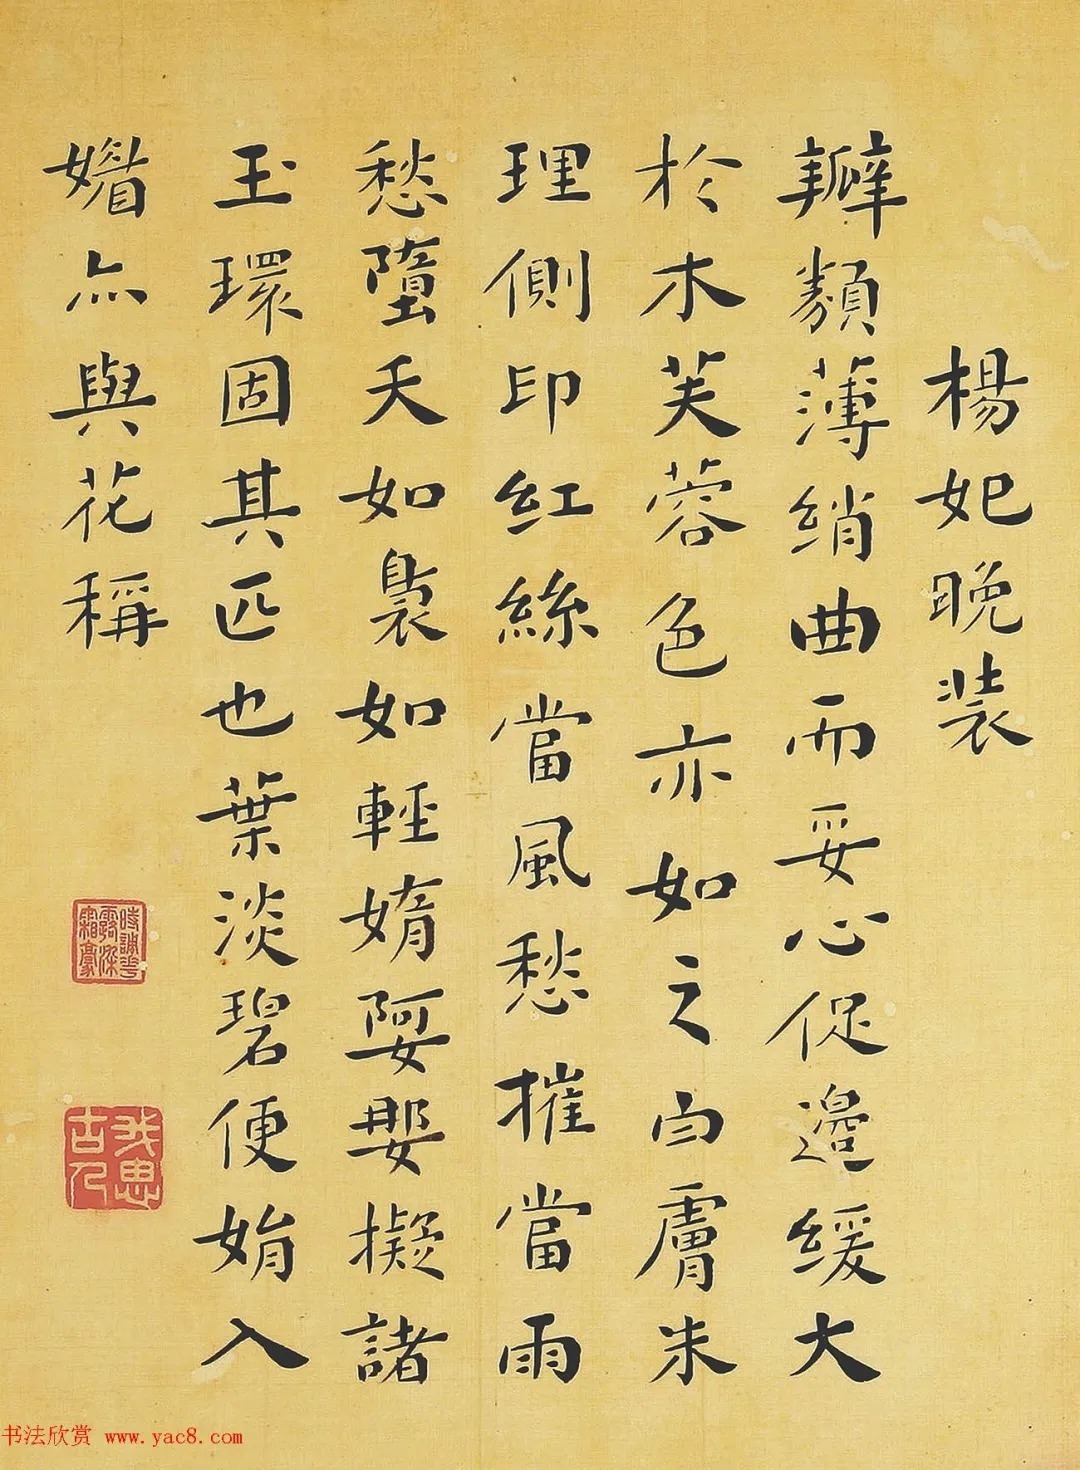 楊妃晚装
瓣類薄綃曲而妥心促邊緩大
於木芙蓉色亦如之白膚朱
理側印紅絲當風愁摧當雨
愁墮夭如裊如輕媠婜娿擬諸
玉環固其匹也葉淡碧便娟入
媚亦與花稱
我思古人
书法欣赏 www.yac8.com